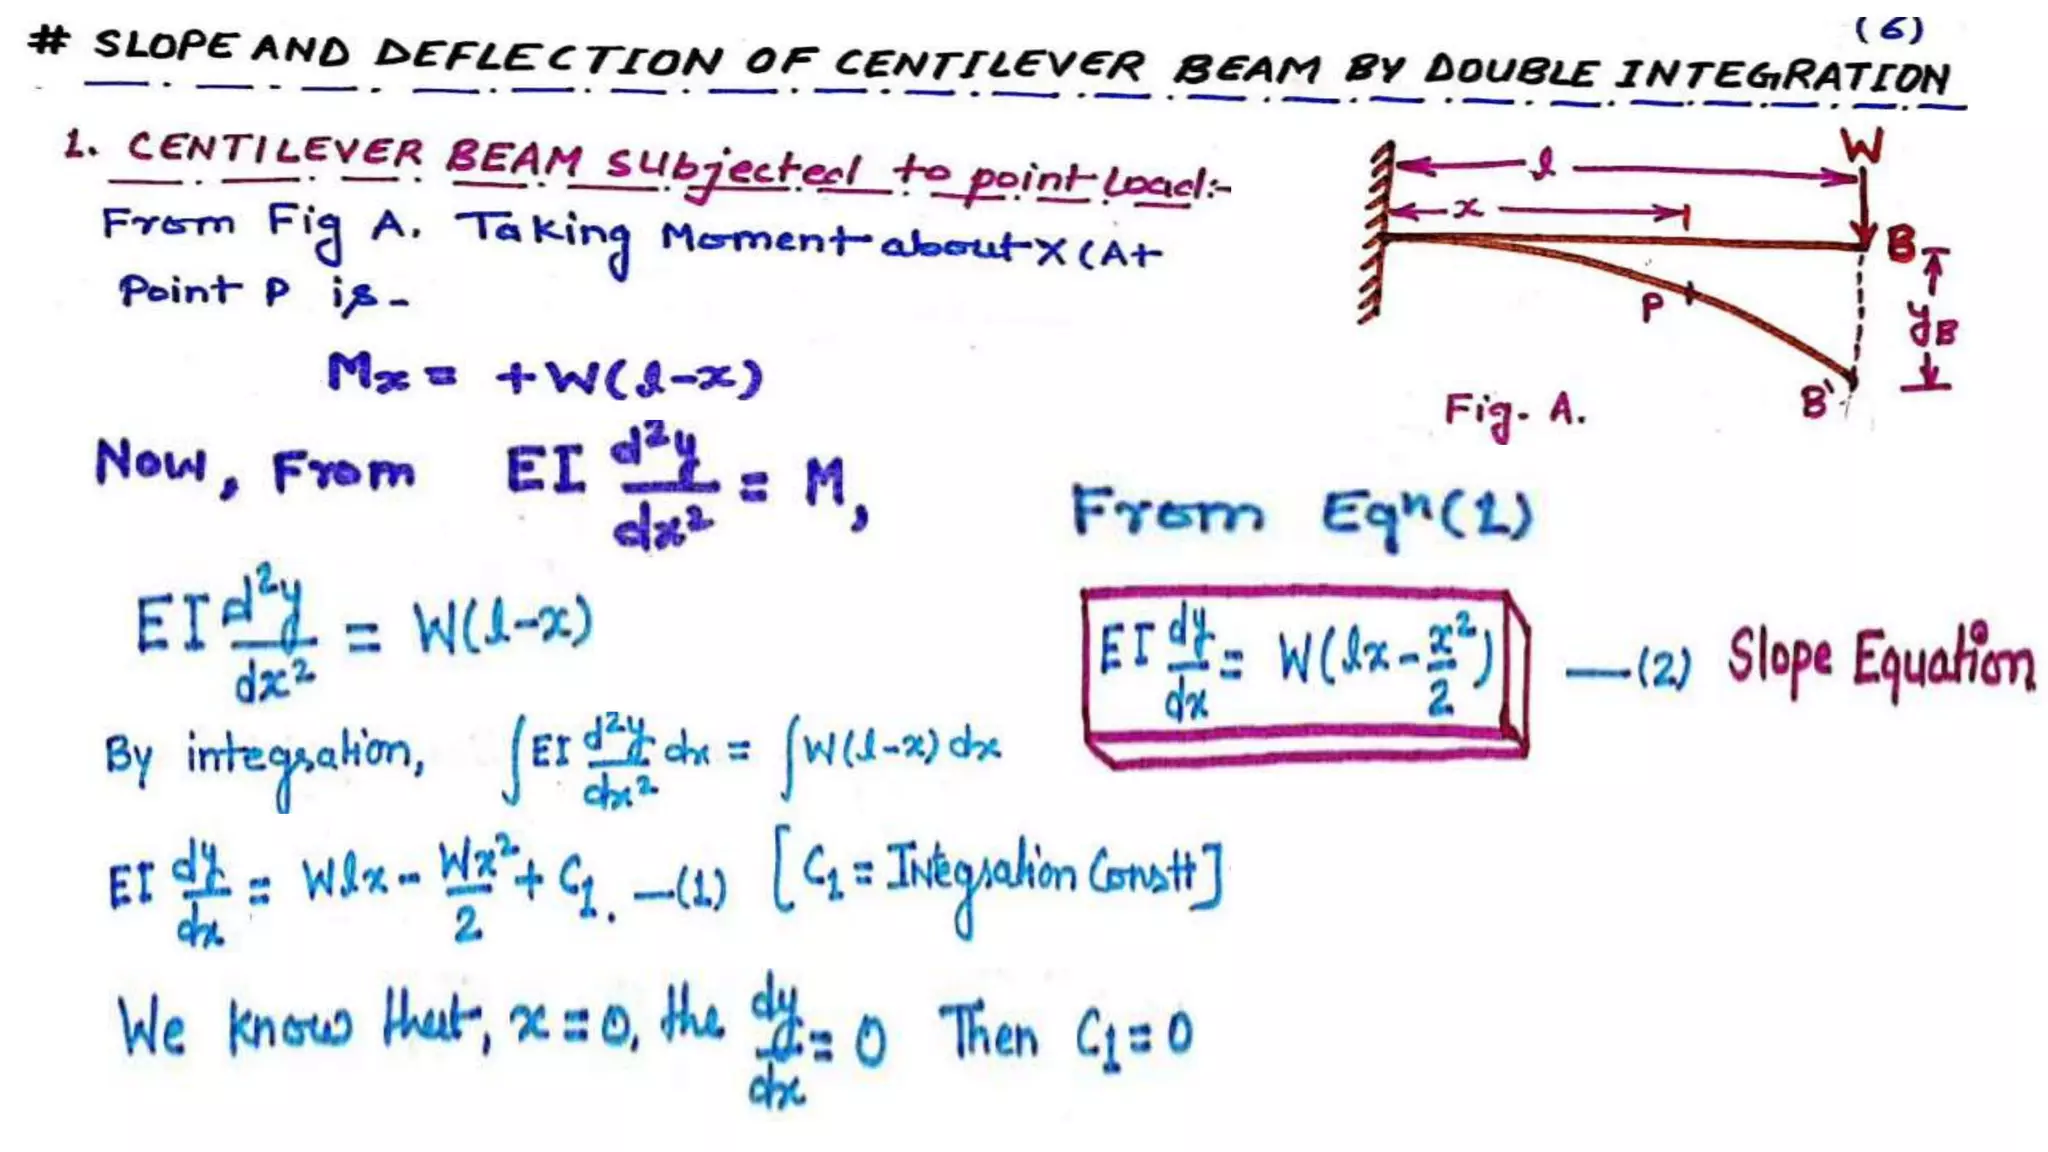 (6)
# SLOPE AND DEFLECTION OF CENTILEVER BEAM BY DOUBLE INTEGRATION
1. CENTILEVER BEAM Subjected to point Load:-
From Fig A. Taking Moment about X (At
Point P is -
Mx = +W(l-x)
W
l
x
B
P
yB
B'
Fig. A.
Now, From EI d²y/dx² = M,
EI d²y/dx² = W(l-x)
By integration, ∫EI d²y/dx² dx = ∫W(l-x) dx
EI dy/dx = Wlx - Wx²/2 + C₁. —(1) [C₁ = Integration Constt]
We know that, x=0, the dy/dx = 0 Then C₁=0
From Eqⁿ(1)
EI dy/dx = W(lx - x²/2) —(2) Slope Equation